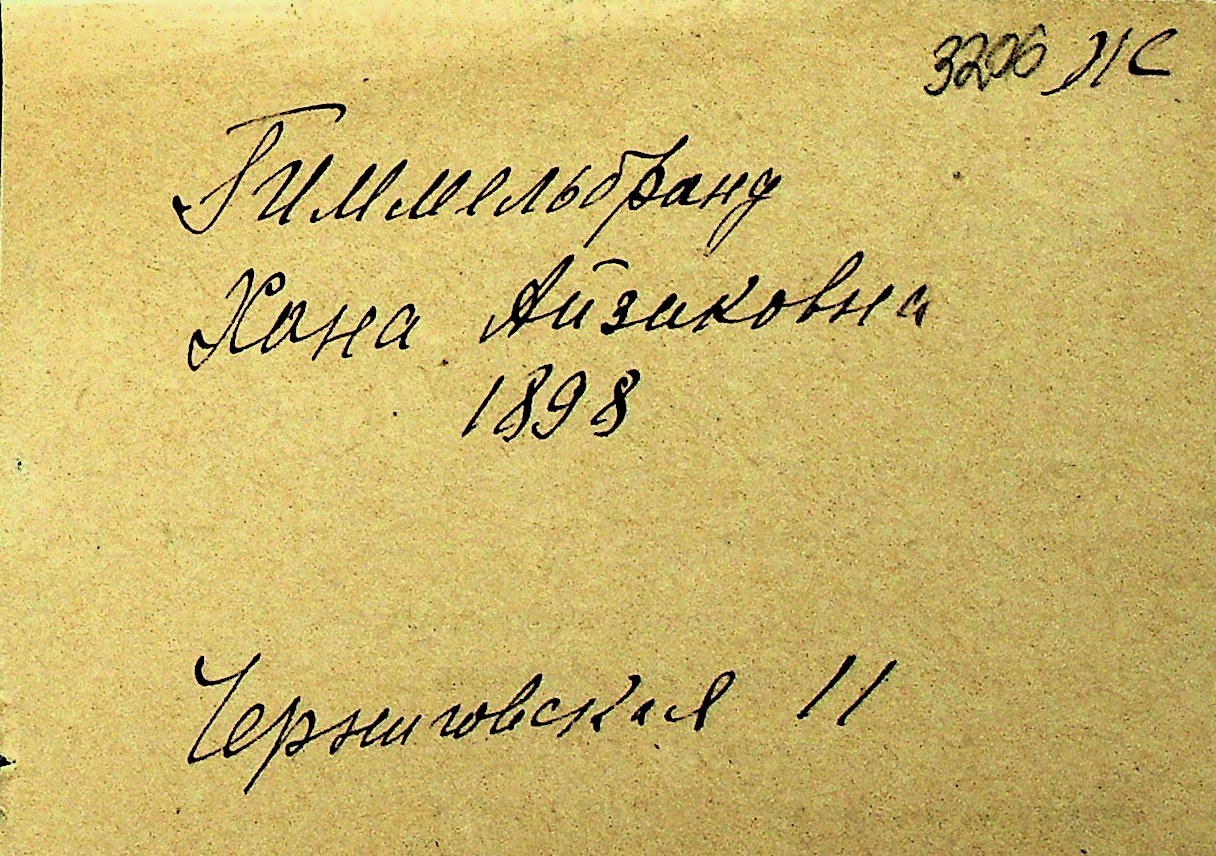 3206 ЖС
Гиммельбранд
Хана Айзиковна
1898
Черниговская 11